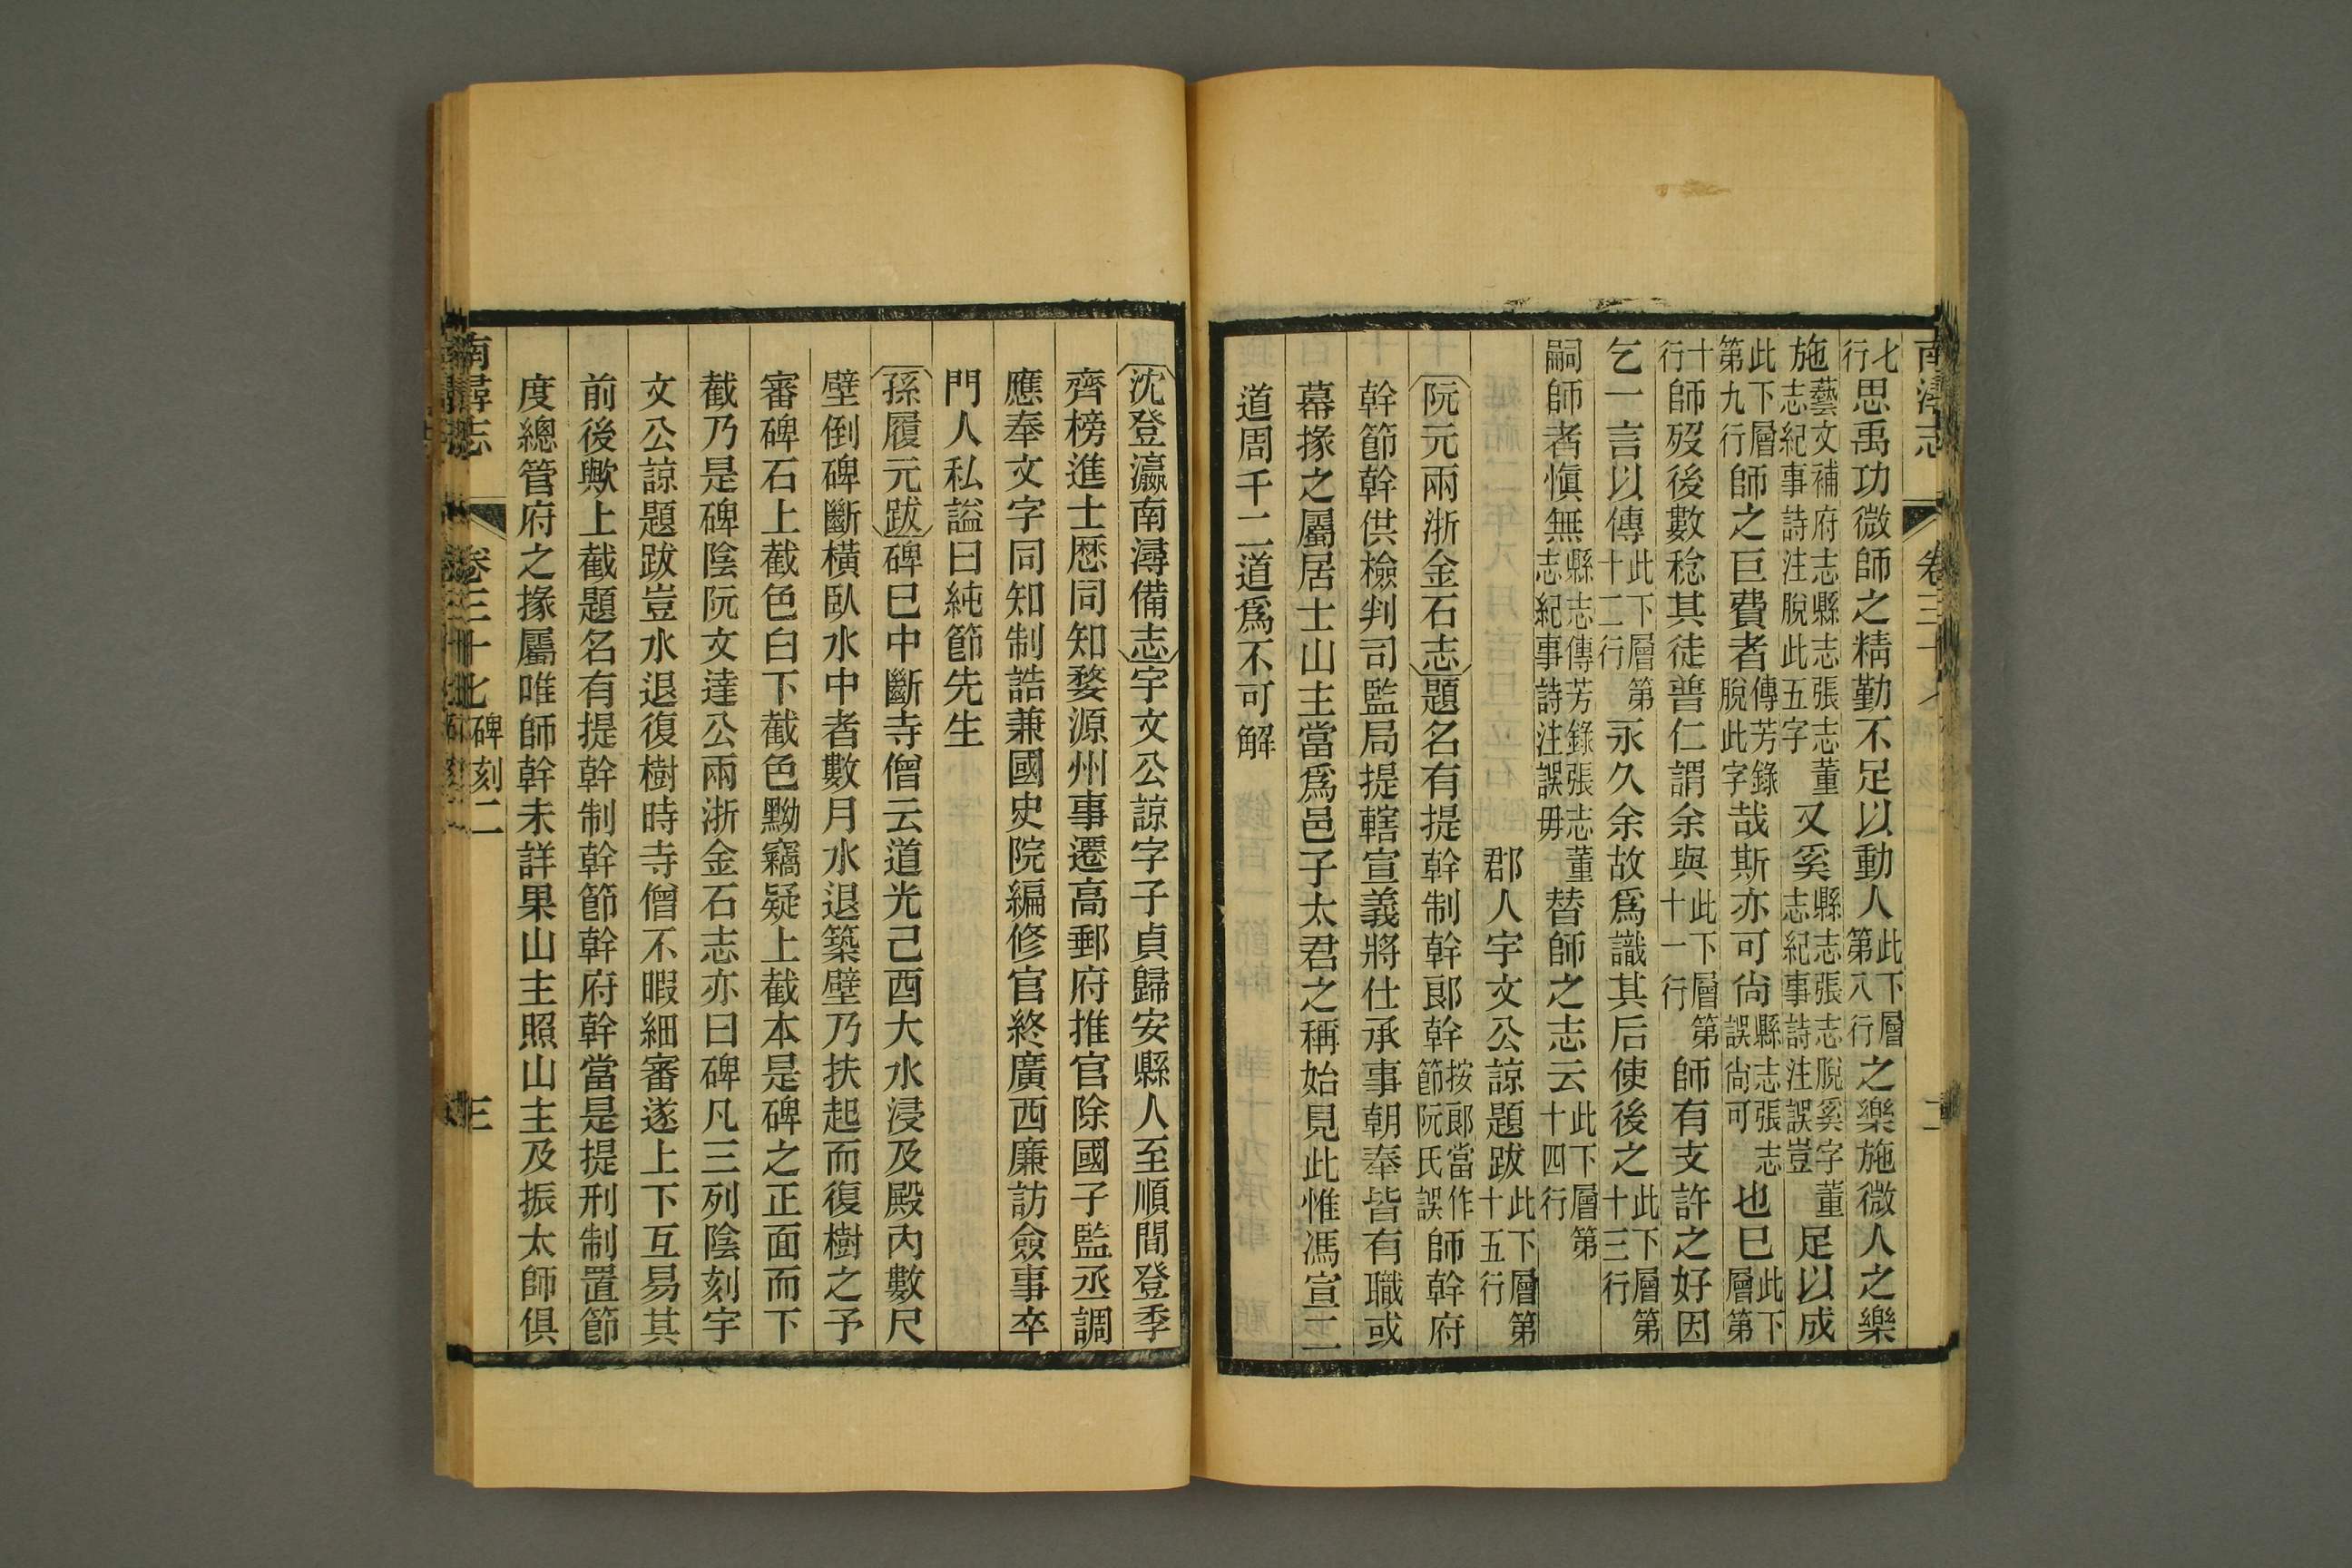 南潯志 卷三十 二
七行思禹功微師之精勤不足以動人此下層第八行之樂施微人之樂
施藝文補府志縣志張志董志紀事詩注脫此五字又奚縣志張志脫奚字董志紀事詩注誤豈足以成
此下層第九行師之巨費者傳芳錄脫此字哉斯亦可尙縣志張志誤尙可也已此下層第
十行師歿後數稔其徒普仁謂余與此下層第十一行師有支許之好因
乞一言以傳此下層第十二行永久余故爲識其后使後之此下層第十三行
嗣師者愼無縣志傳芳錄張志董志紀事詩注誤毋替師之志云此下層第十四行
郡人宇文公諒題跋此下層第十五行
阮元兩浙金石志題名有提幹制幹郞幹按郞當作節阮氏誤師幹府
幹節幹供檢判司監局提轄宣義將仕承事朝奉皆有職或
幕掾之屬居士山主當爲邑子太君之稱始見此惟馮宣二
道周千二道爲不可解
沈登瀛南潯備志宇文公諒字子貞歸安縣人至順間登季
齊榜進士歷同知婺源州事遷高郵府推官除國子監丞調
應奉文字同知制誥兼國史院編修官終廣西廉訪僉事卒
門人私謚曰純節先生
孫履元跋碑已中斷寺僧云道光己酉大水浸及殿內數尺
壁倒碑斷橫臥水中者數月水退築壁乃扶起而復樹之予
審碑石上截色白下截色黝竊疑上截本是碑之正面而下
截乃是碑陰阮文達公兩浙金石志亦曰碑凡三列陰刻宇
文公諒題跋豈水退復樹時寺僧不暇細審遂上下互易其
前後歟上截題名有提幹制幹節幹府幹當是提刑制置節
度總管府之掾屬唯師幹未詳果山主照山主及振太師俱
南潯志 卷三十七 碑刻二 三